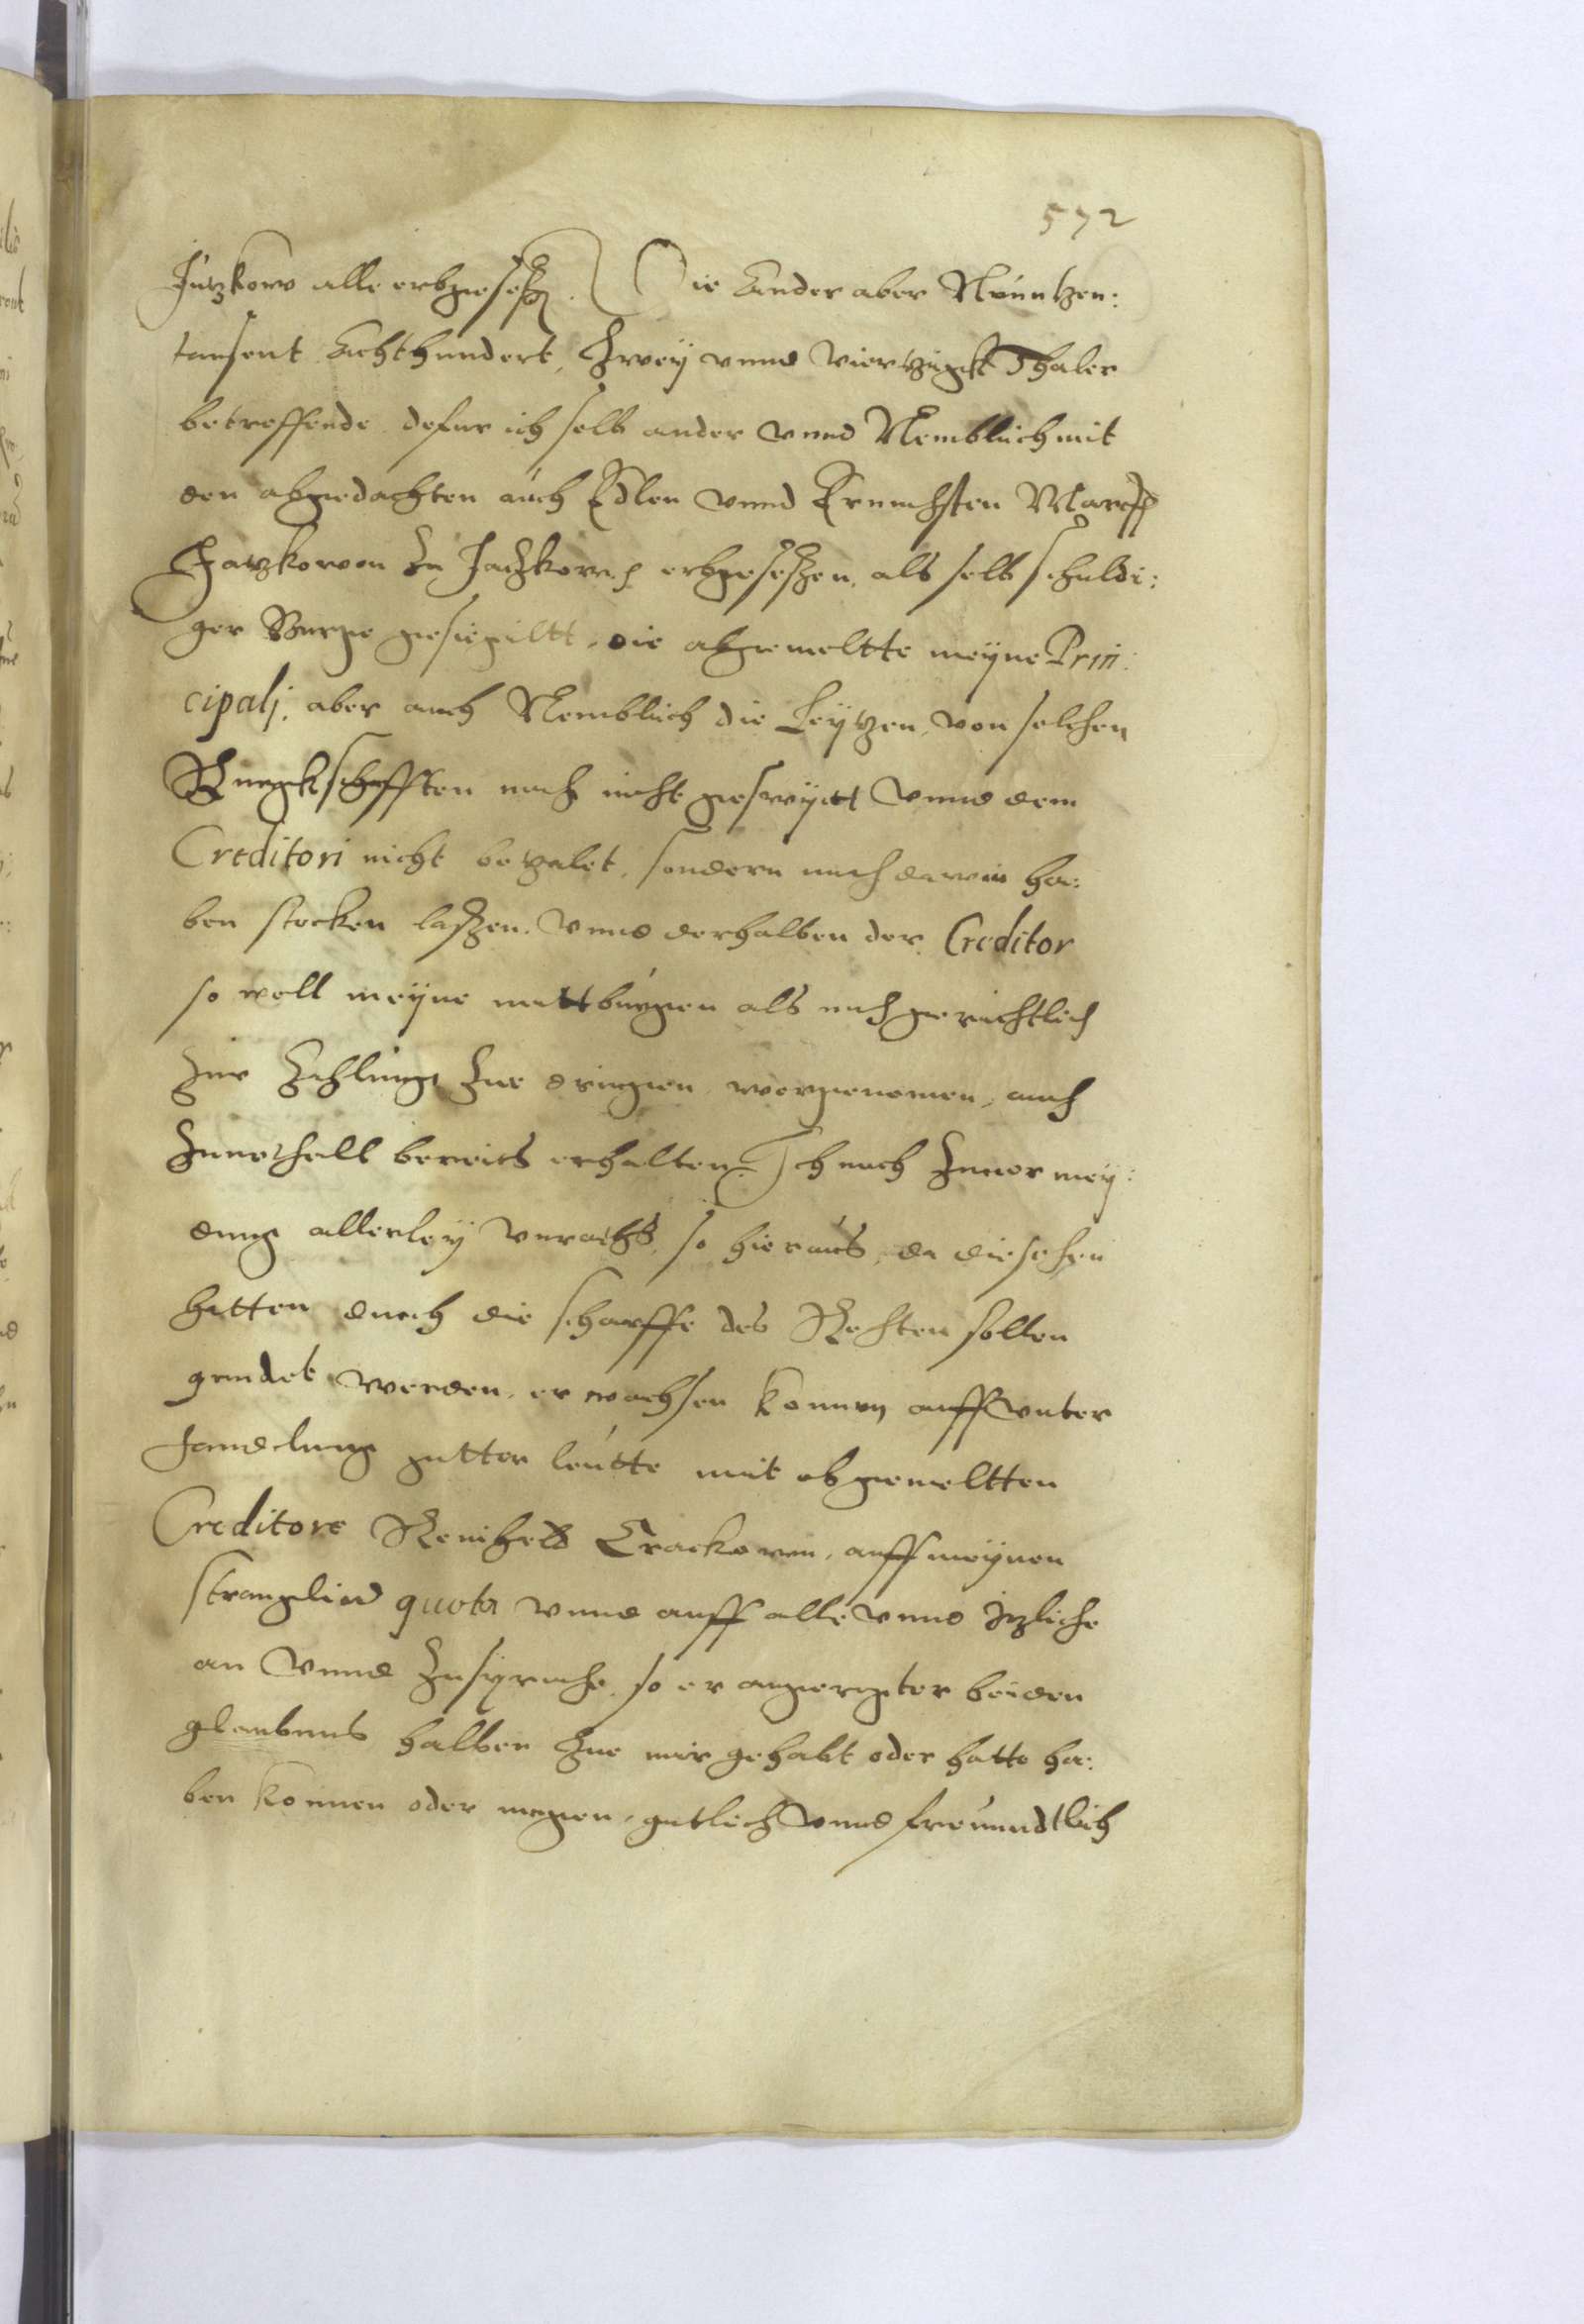 572
Jutzkow alle erbgesessen. Die Ander aber Neuntzen:
tausent Achthundert, Zweÿ vnnd viertzigk Thaler
betreffende dafur ich selb ander vnnd Nemblich mit
den abgedachten auch Edlen vnnd Ernuhesten
zu erbgesessen, als selb schuldi:
ger Burge gesiegiltt, die abgemeltte meÿne Prin:
cipalj, aber auch Nemblich die von solchen
Burgkschafften mich nicht gefreÿett vnnd dem
Creditori nicht betzalet, sondern mich darein ha:
ben stecken laszen. vnnd derhalben der Creditor
so woll meÿne mittburgen als mich gerichtlich
zur Zahlunge zue dringen vorgenomen, auch
bereits erhalten. Ich mich Zuuormeÿ:
dung allerleÿ vnraths, so hieraus, da die sachen
hetten durch die scharffe des Rechten sollen
geendet werden, erwachsen konnen auff vnter
handlung gutter leutte mit abgemeltten
Creditore Crackowen, auff meÿnen
quota vnnd auff alle vnnd itzliche
an vnnd Zusprache, so er angeregter beiden
glaubens halben Zue mir gehabt oder hatte ha:
ben konnen oder mogen, gutlich vnnd freundtlich